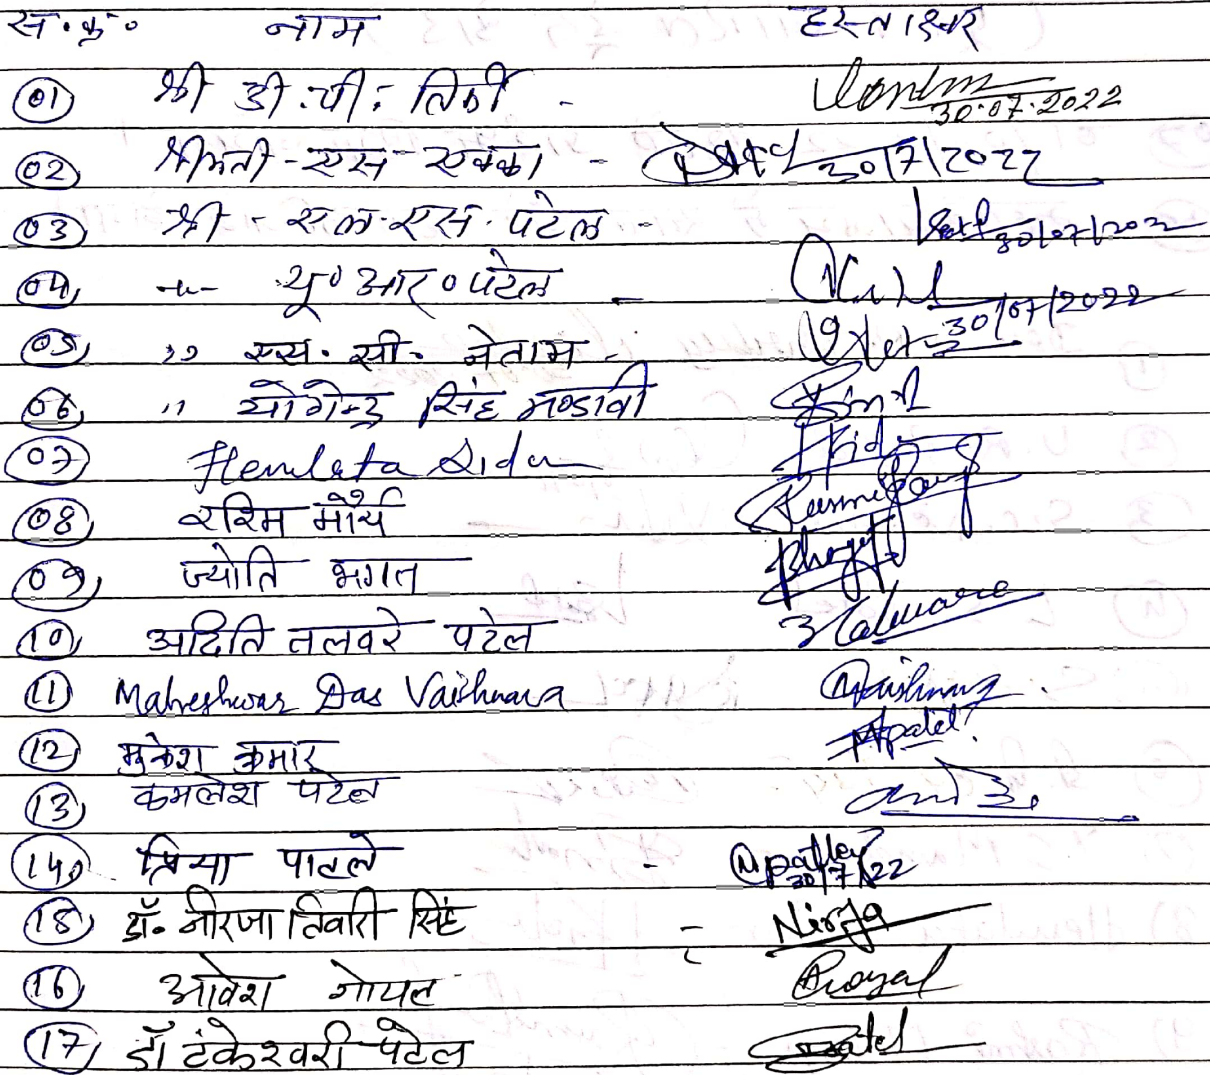 स.क्र० नाम हस्ताक्षर
01 श्री डी.पी. तिर्की - 30.07.2022
02 श्रीमती - एस - एक्का - 30/7/2022
03 श्री - एल.एस. पटेल - 30/07/2022
04 -"- यू० आर० पटेल - 30/07/2022
05 ,, एस. सी. नेताम -
06 ,, योगेन्द्र सिंह मण्डावी Singh
07 Hemlata Sidar
08 रश्मि मौर्य
09 ज्योति भगत Bhagat
10 अदिति तलवरे पटेल Talware
11 Maheshwar Das Vaishnava Vaishnav
12 मुकेश कुमार Patel
13 कमलेश पटेल
14 प्रिया पाटले - Patley 30/7/22
15 डॉ. नीरजा तिवारी सिंह - Nirja
16 आवेश गोयल Goyal
17 डॉ टंकेश्वरी पटेल Patel